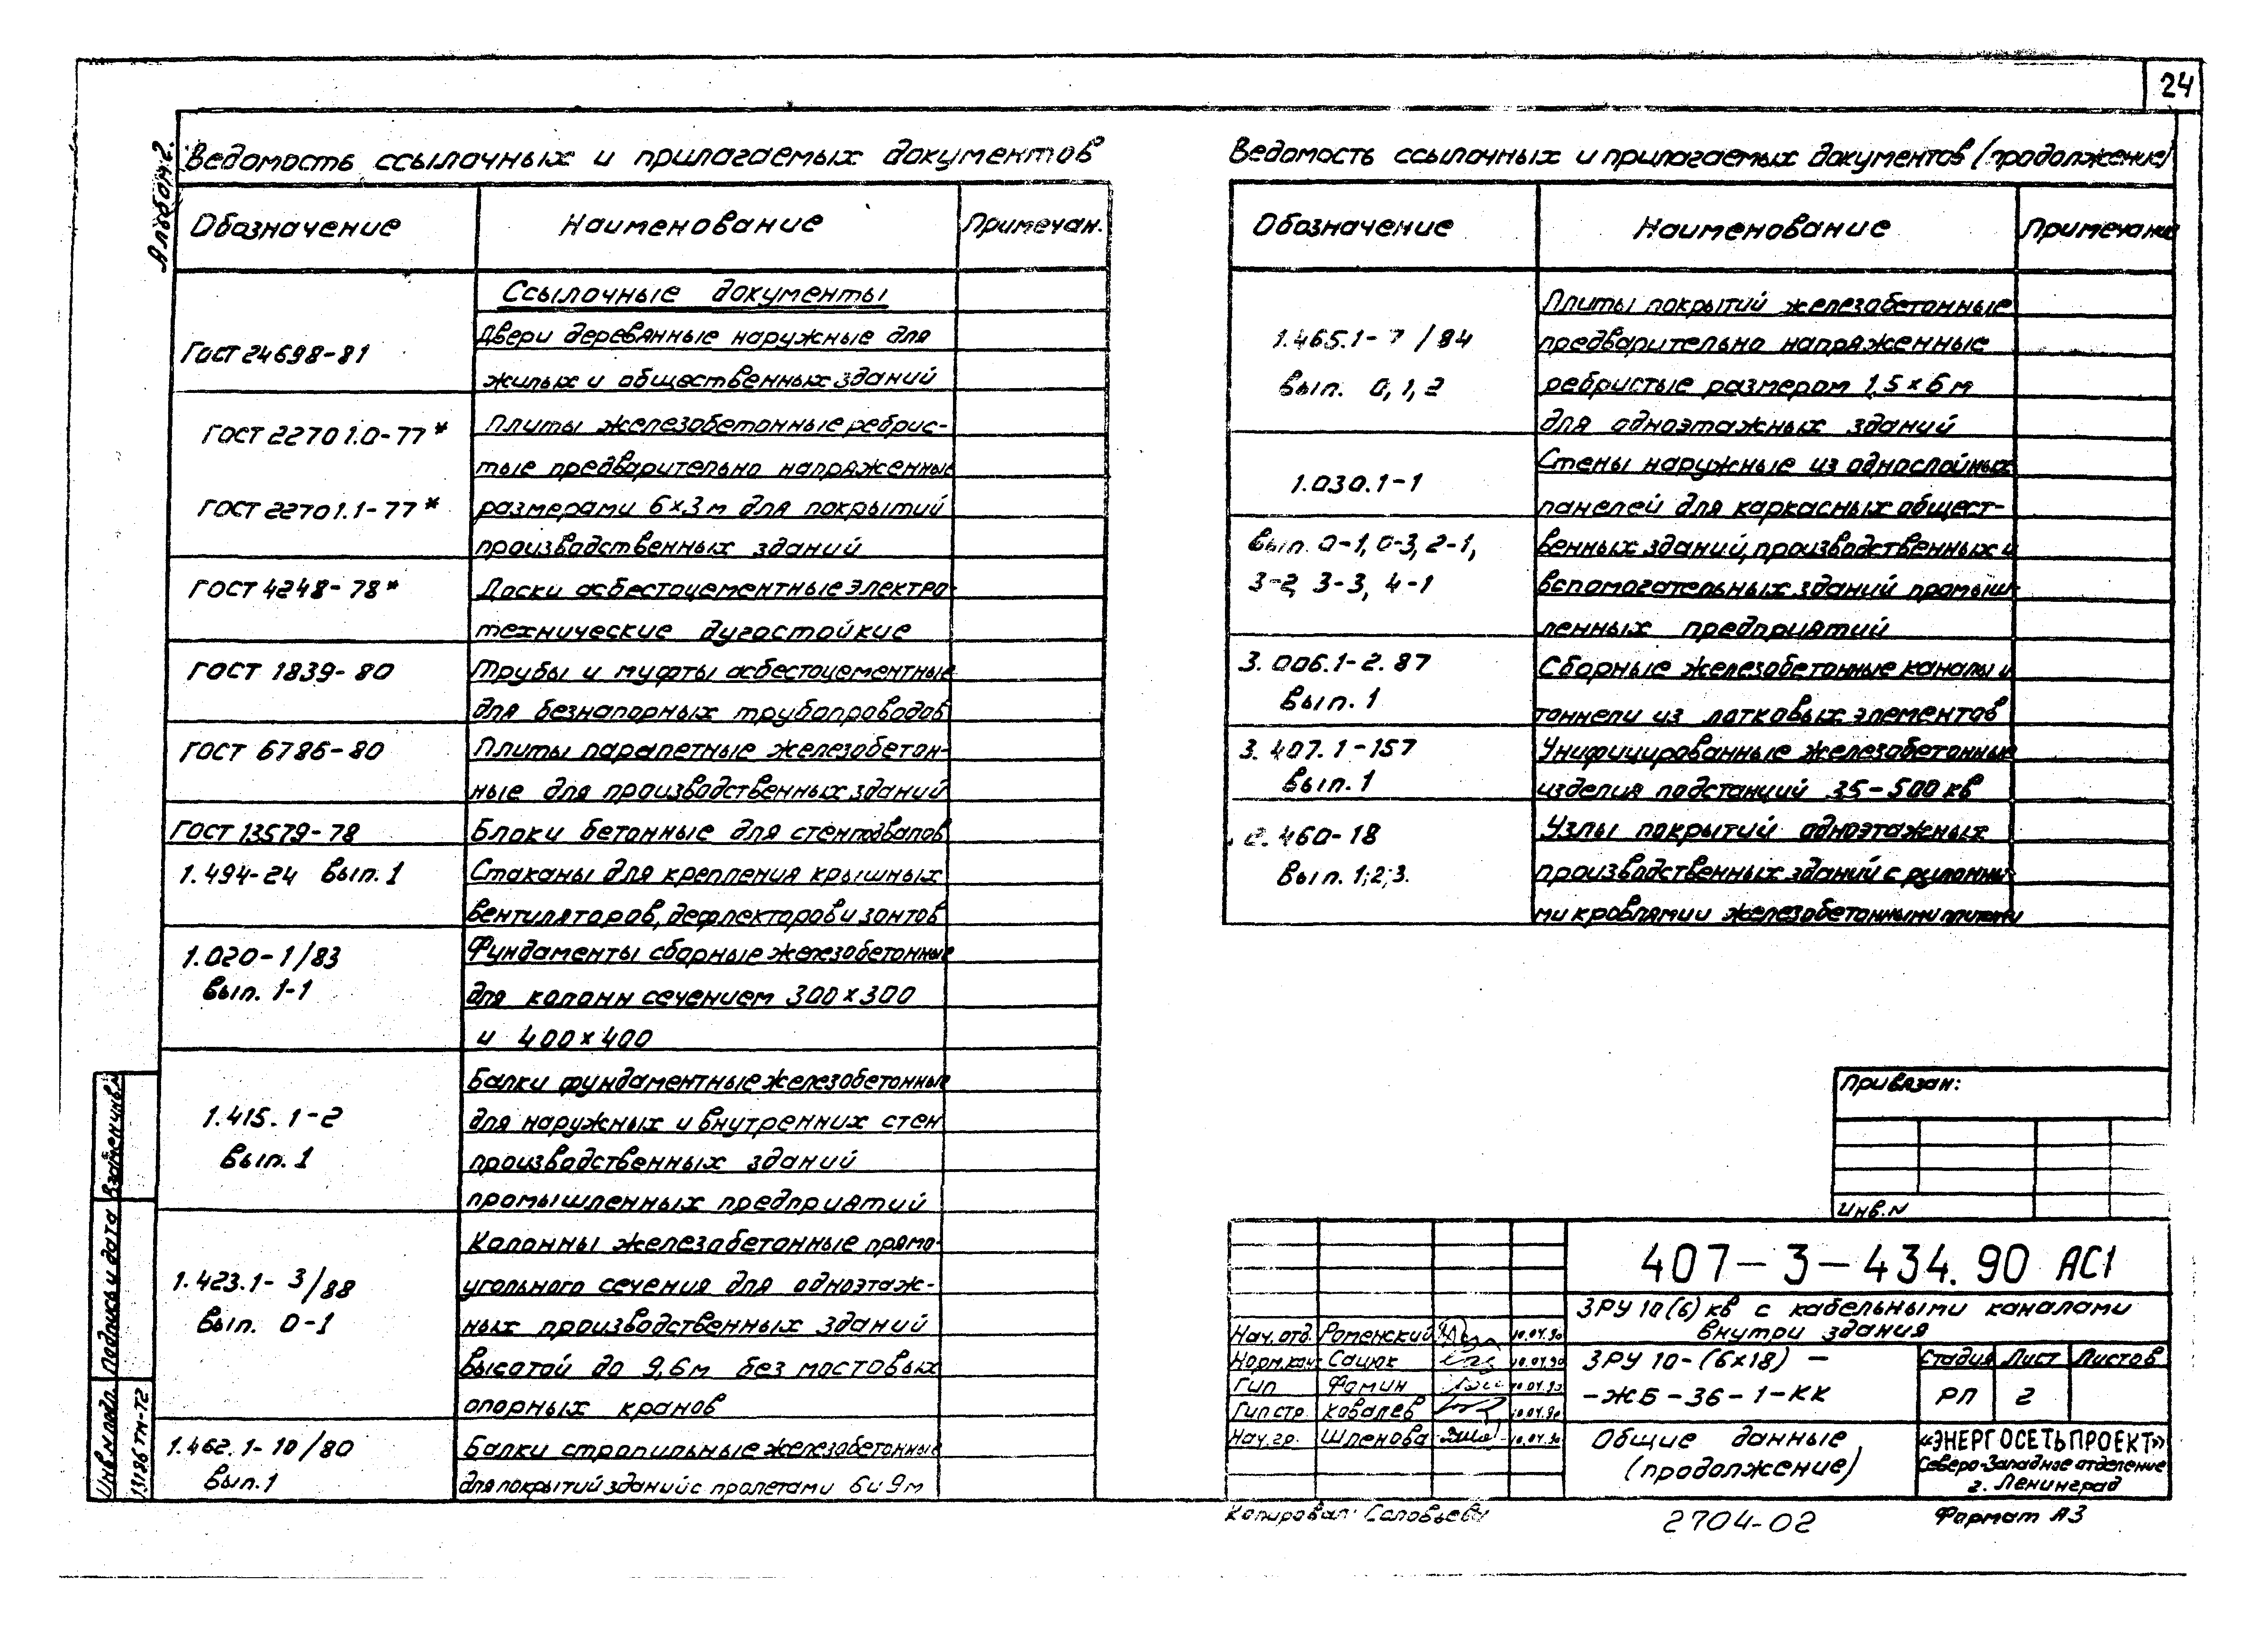 24
Альбом 2.
Ведомость ссылочных и прилагаемых документов
Обозначение Наименование Примечан.
Ссылочные документы
Гост 24698-81 Двери деревянные наружные для
жилых и общественных зданий
Гост 22701.0-77* Плиты железобетонные ребрис-
тые предварительно напряженные
Гост 22701.1-77* размерами 6×3м для покрытий
производственных зданий
Гост 4248-78* Доски асбестоцементные электро-
технические дугостойкие
Гост 1839-80 Трубы и муфты асбестоцементные
для безнапорных трубопроводов
Гост 6786-80 Плиты парапетные железобетон-
ные для производственных зданий
Гост 13579-78 Блоки бетонные для стен подвалов
1.494-24 вып.1 Стаканы для крепления крышных
вентиляторов, дефлекторов и зонтов
1.020-1/83 Фундаменты сборные железобетонные
вып. 1-1 для колонн сечением 300×300
и 400×400
Балки фундаментные железобетонные
1.415.1-2 для наружных и внутренних стен
вып.1 производственных зданий
промышленных предприятий
Колонны железобетонные прямо-
1.423.1-3/88 угольного сечения для одноэтаж-
вып. 0-1 ных производственных зданий
высотой до 9,6м без мостовых
опорных кранов
1.462.1-10/80 Балки стропильные железобетонные
вып.1 для покрытий зданий с пролетами 6 и 9м
Ведомость ссылочных и прилагаемых документов (продолжение)
Обозначение Наименование Примечание
Плиты покрытий железобетонные
1.465.1-7/84 предварительно напряженные
вып. 0,1,2 ребристые размером 1,5×6м
для одноэтажных зданий
1.030.1-1 Стены наружные из однослойных
панелей для каркасных общест-
вып. 0-1, 0-3, 2-1, венных зданий, производственных и
3-2, 3-3, 4-1 вспомогательных зданий промыш-
ленных предприятий
3.006.1-2.87 Сборные железобетонные каналы и
вып.1 тоннели из лотковых элементов
3.407.1-157 Унифицированные железобетонные
вып.1 изделия подстанций 35-500кв
2.460-18 Узлы покрытий одноэтажных
вып. 1;2;3. производственных зданий с рулонны-
ми кровлями и железобетонными плитами
Привязан:
Инв.N
407-3-434.90 АС1
ЗРУ 10(6)кв с кабельными каналами
внутри здания
Нач.отд. Роменский 10.04.90
Норм.кон. Сацюк 10.04.90
Гип Фомин 10.04.90
Гип стр. Ковалев 10.04.90
Нач.гр. Шленова 10.04.90
ЗРУ 10-(6×18)-
-ЖБ-36-1-КК
Стадия Лист Листов
РП 2
Общие данные
(продолжение)
«ЭНЕРГОСЕТЬПРОЕКТ»
Северо-Западное отделение
г. Ленинград
Копировал: Соловьева
2704-02
Формат А3
Взамен инв.N
Подпись и дата
Инв.N подл.
13186тм-т2